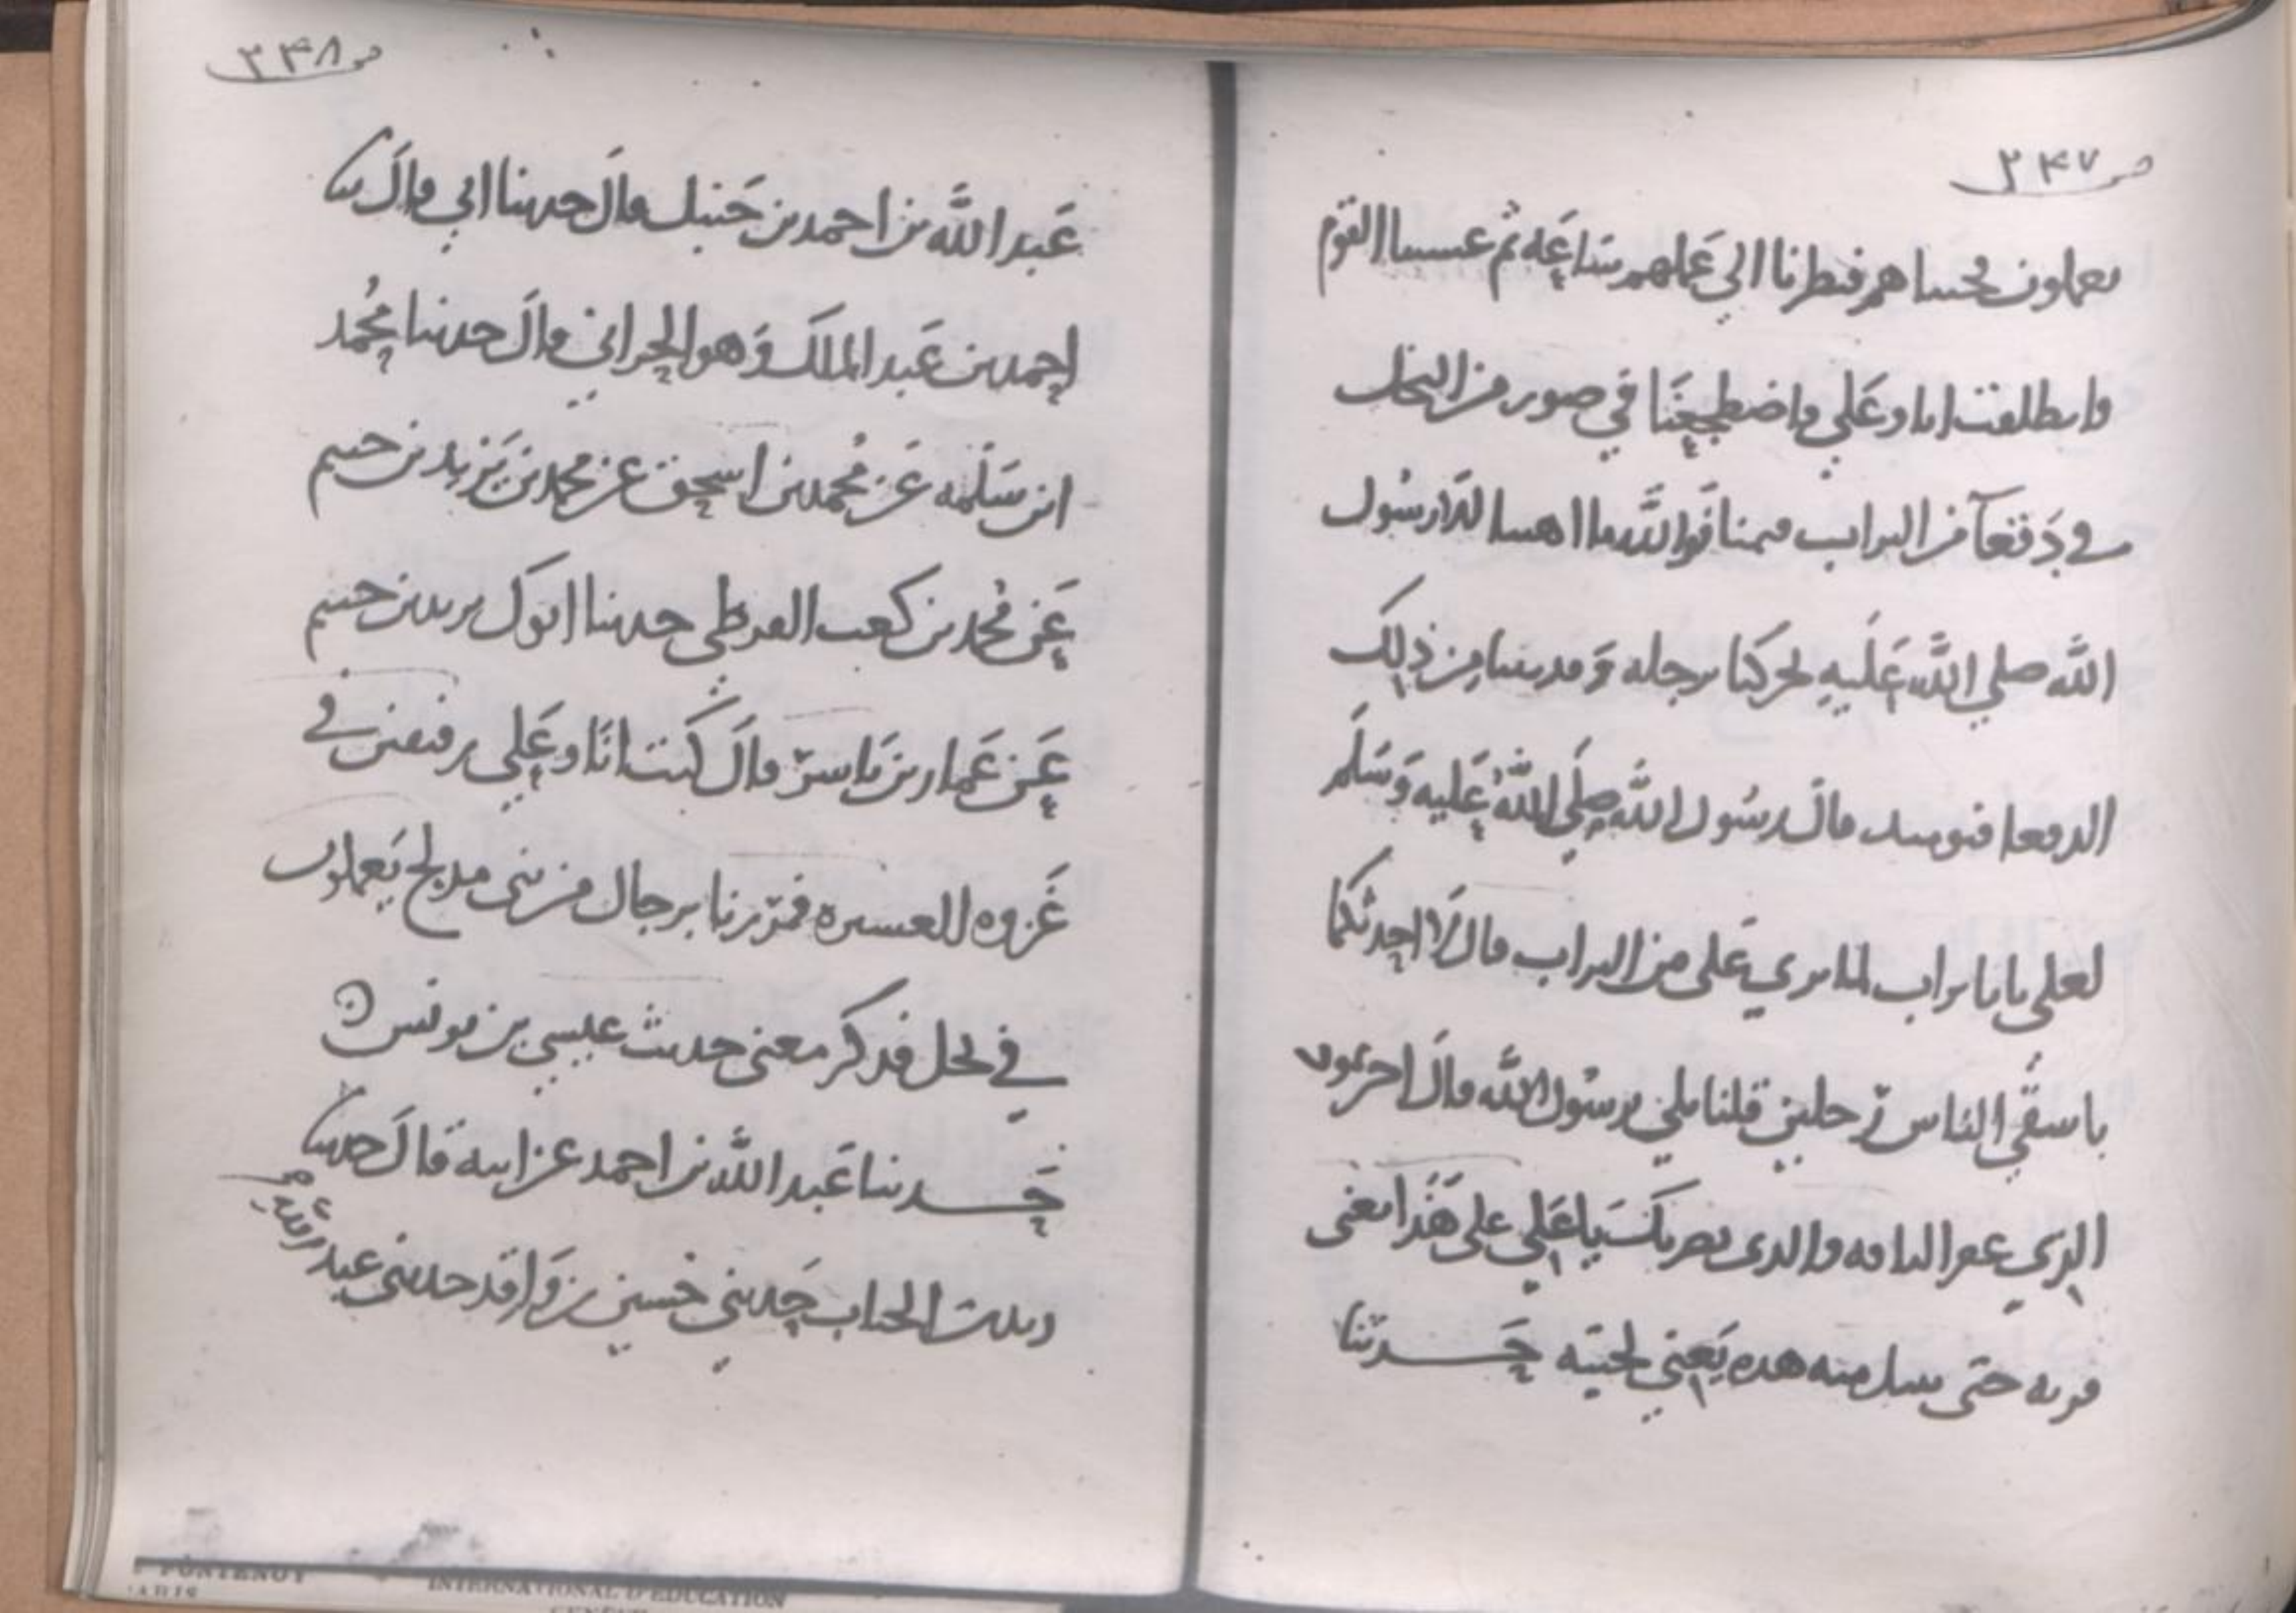 ص ٢٤٧
يعملون فجئناهم فنظرنا الي عملهم ساعه ثم غشينا النوم
فانطلقت انا وعلي فاضطجعنا في صور من النخل
في دقعا من التراب فنمنا فوالله ما اهبنا الا رسول
الله صلي الله عليه يحركنا برجله وقد تتربنا من ذلك
الدقعا فيومئذ قال رسول الله صلي الله عليه وسلم
لعلي يابا تراب لما يري علي من التراب قال الا احدثكما
باشقي الناس رجلين قلنا بلي يرسول الله قال احيمر ثمود
الذي عقر الناقه والذي يضربك يا علي علي هذا يعني
قرنه حتي يبل منه هذه يعني لحيته حدثنا
ص ٢٤٨
عبد الله بن احمد بن حنبل قال حدثنا ابي قال نا
احمد بن عبد الملك وهو الحراني قال حدثنا محمد
ابن سلمه عن محمد بن اسحق عن محمد بن يزيد بن خثيم
عن محمد بن كعب القرظي حدثنا ابوك يزيد بن خثيم
عن عمار بن ياسر قال كنت انا وعلي رفيقين في
غزوه العسيره فمررنا برجال من بني مدلج يعملون
في نخل فذكر معني حديث عيسي بن يونس
حدثنا عبد الله بن احمد عن ابيه قال حدثنا
زيد بن الحباب حدثني حسين بن واقد حدثني عبد
INTERNATIONAL D'EDUCATION